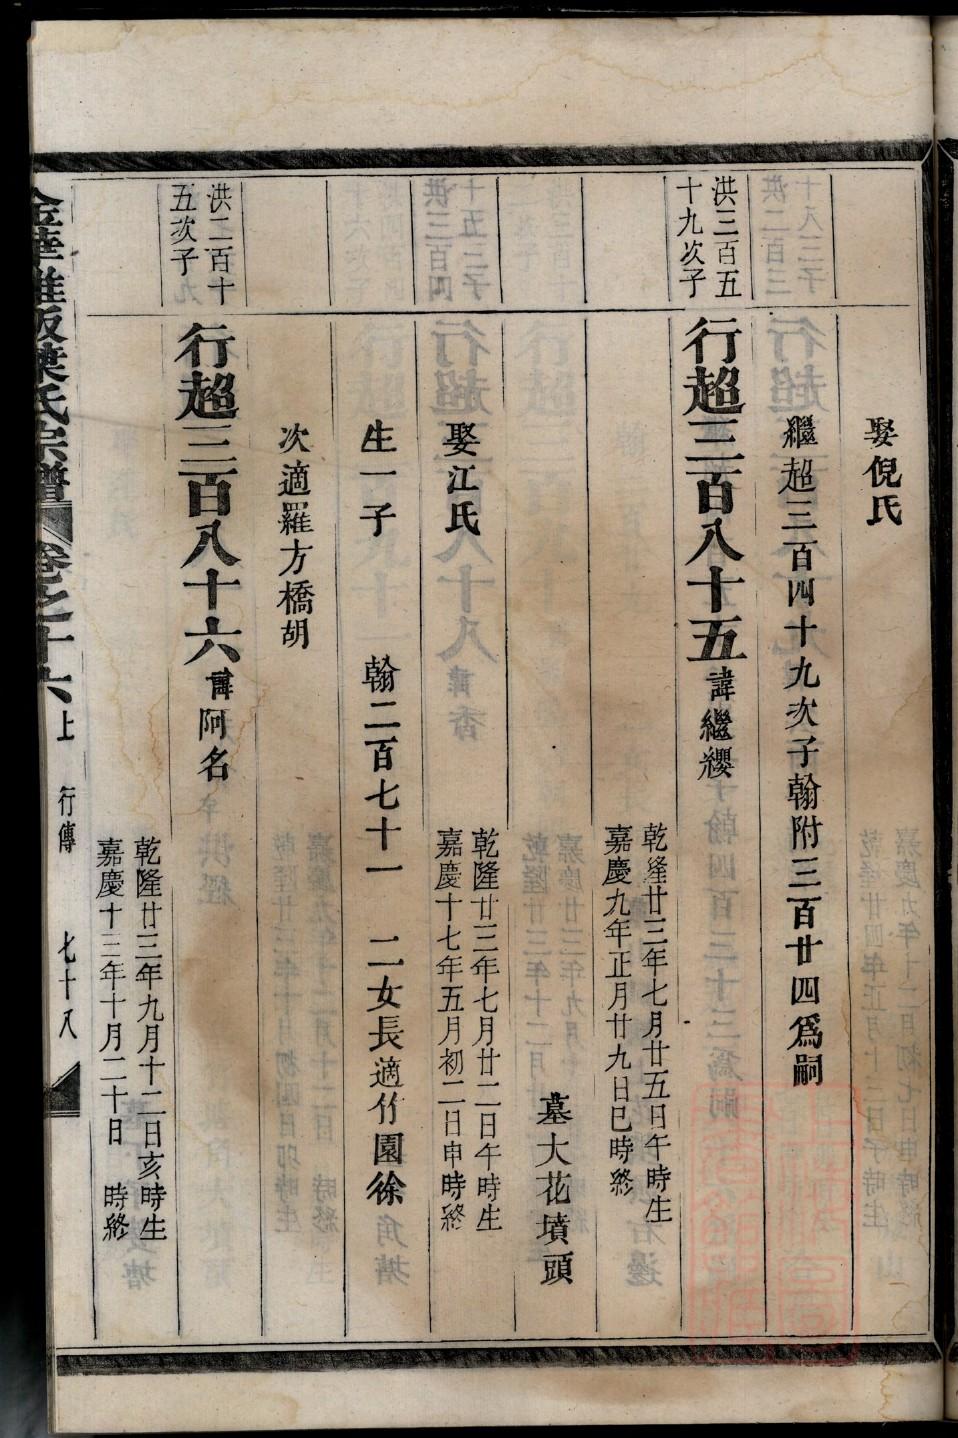 娶倪氏
繼超三百四十九次子翰附三百廿四爲嗣
洪三百五
十九次子
行超三百八十五諱繼纓
乾隆廿三年七月廿五日午時生
嘉慶九年正月廿九日巳時終
墓大花墳頭
娶江氏
乾隆廿三年七月廿二日午時生
嘉慶十七年五月初二日申時終
生一子 翰二百七十一 二女長適竹園徐
次適羅方橋胡
洪二百十
五次子
行超三百八十六諱阿名
乾隆廿三年九月十二日亥時生
嘉慶十三年十月二十日 時終
葉氏宗譜 卷之十六上 行傳 七十八